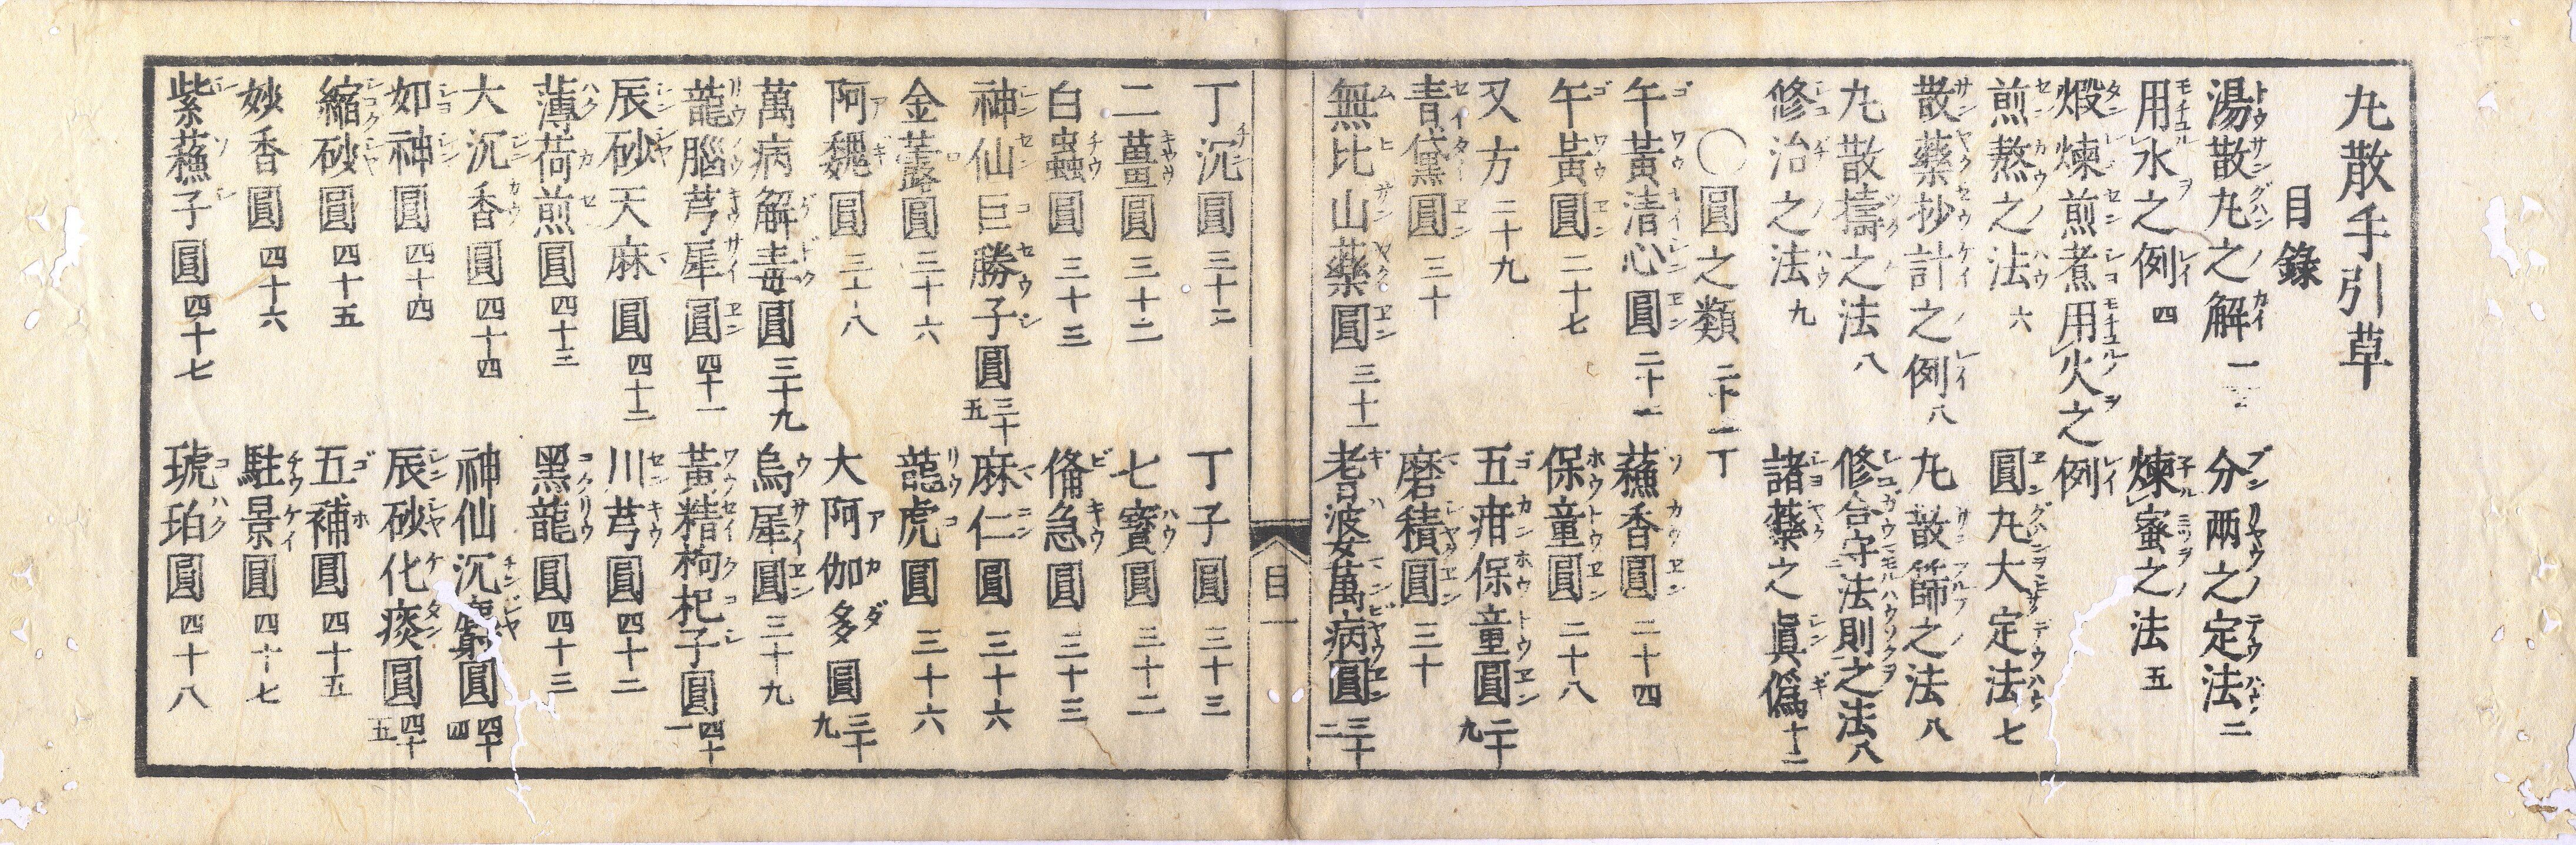 丸散手引草
目錄
湯散丸之解 一 分两之定法 二
用水之例 四 煉蜜之法 五
煅煉煎煮用火之例
煎熬之法 六 圓丸大定法 七
散藥抄計之例 八 丸散篩之法 八
丸散擣之法 八 修合守法則之法 八
修治之法 九 諸藥之眞僞 十二
〇圓之類 二十一丁
午黃清心圓 二十一 蘓香圓 二十四
午黃圓 二十七 保童圓 二十八
又方 二十九 五疳保童圓 二十九
青黛圓 三十 磨積圓 三十
無比山藥圓 三十一 耆婆萬病圓 三十二
目一
丁沉圓 三十二 丁子圓 三十三
二薑圓 三十二 七寳圓 三十二
白蟲圓 三十三 俻急圓 三十三
神仙巨勝子圓 三十五 麻仁圓 三十六
金露圓 三十六 龍虎圓 三十六
阿魏圓 三十八 大阿伽多圓 三十九
萬病解毒圓 三十九 烏犀圓 三十九
龍腦芎犀圓 四十一 黃精枸杞子圓 四十一
辰砂天麻圓 四十二 川芎圓 四十二
薄荷煎圓 四十三 黑龍圓 四十三
大沉香圓 四十四 神仙沉麝圓 四十四
如神圓 四十四 辰砂化痰圓 四十五
縮砂圓 四十五 五補圓 四十五
妙香圓 四十六 駐景圓 四十七
紫蘓子圓 四十七 琥珀圓 四十八